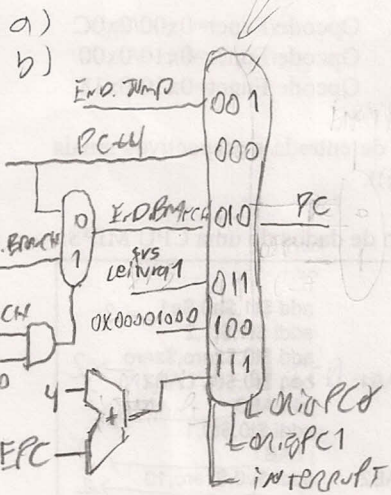 a)
b)
END. JUMP 001
PC+4 000
0
1
END.BRANCH 010 PC
. BRANCH
svs
Leitura1
011
0X00001000 100
111
CH
4
+
EPC
ORIGPC0
ORIGPC1
INTERRUPT